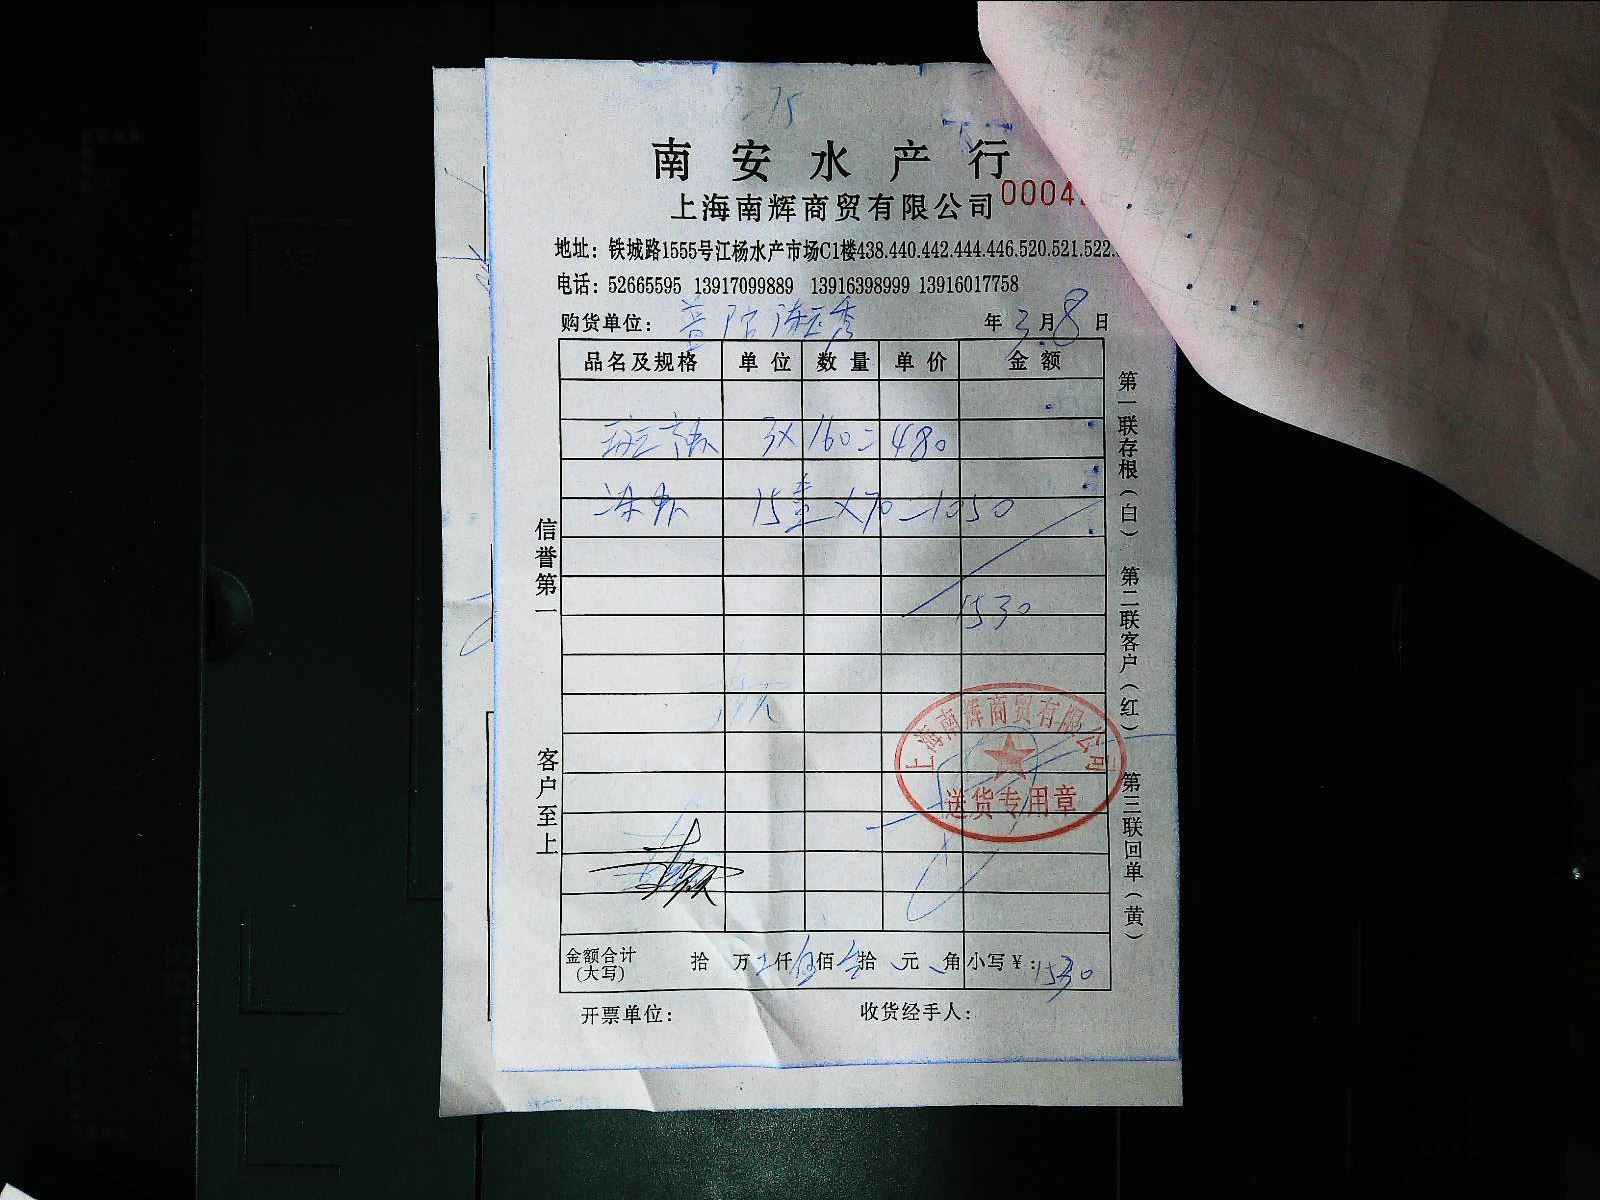 南安水产行
上海南辉商贸有限公司 0004
地址：铁城路1555号江杨水产市场C1楼438.440.442.444.446.520.521.522.
电话：52665595 13917099889 13916398999 13916017758
购货单位： 年 3 月 8 日
品名及规格 单位 数量 单价 金额
3×160=480
冰虾 15 ×70=1050
1530
信誉第一
客户至上
第一联存根（白） 第二联客户（红） 第三联回单（黄）
上海南辉商贸有限公司
送货专用章
金额合计(大写) 拾 万 仟 伍佰 拾 元 角 小写￥：1530
开票单位： 收货经手人：